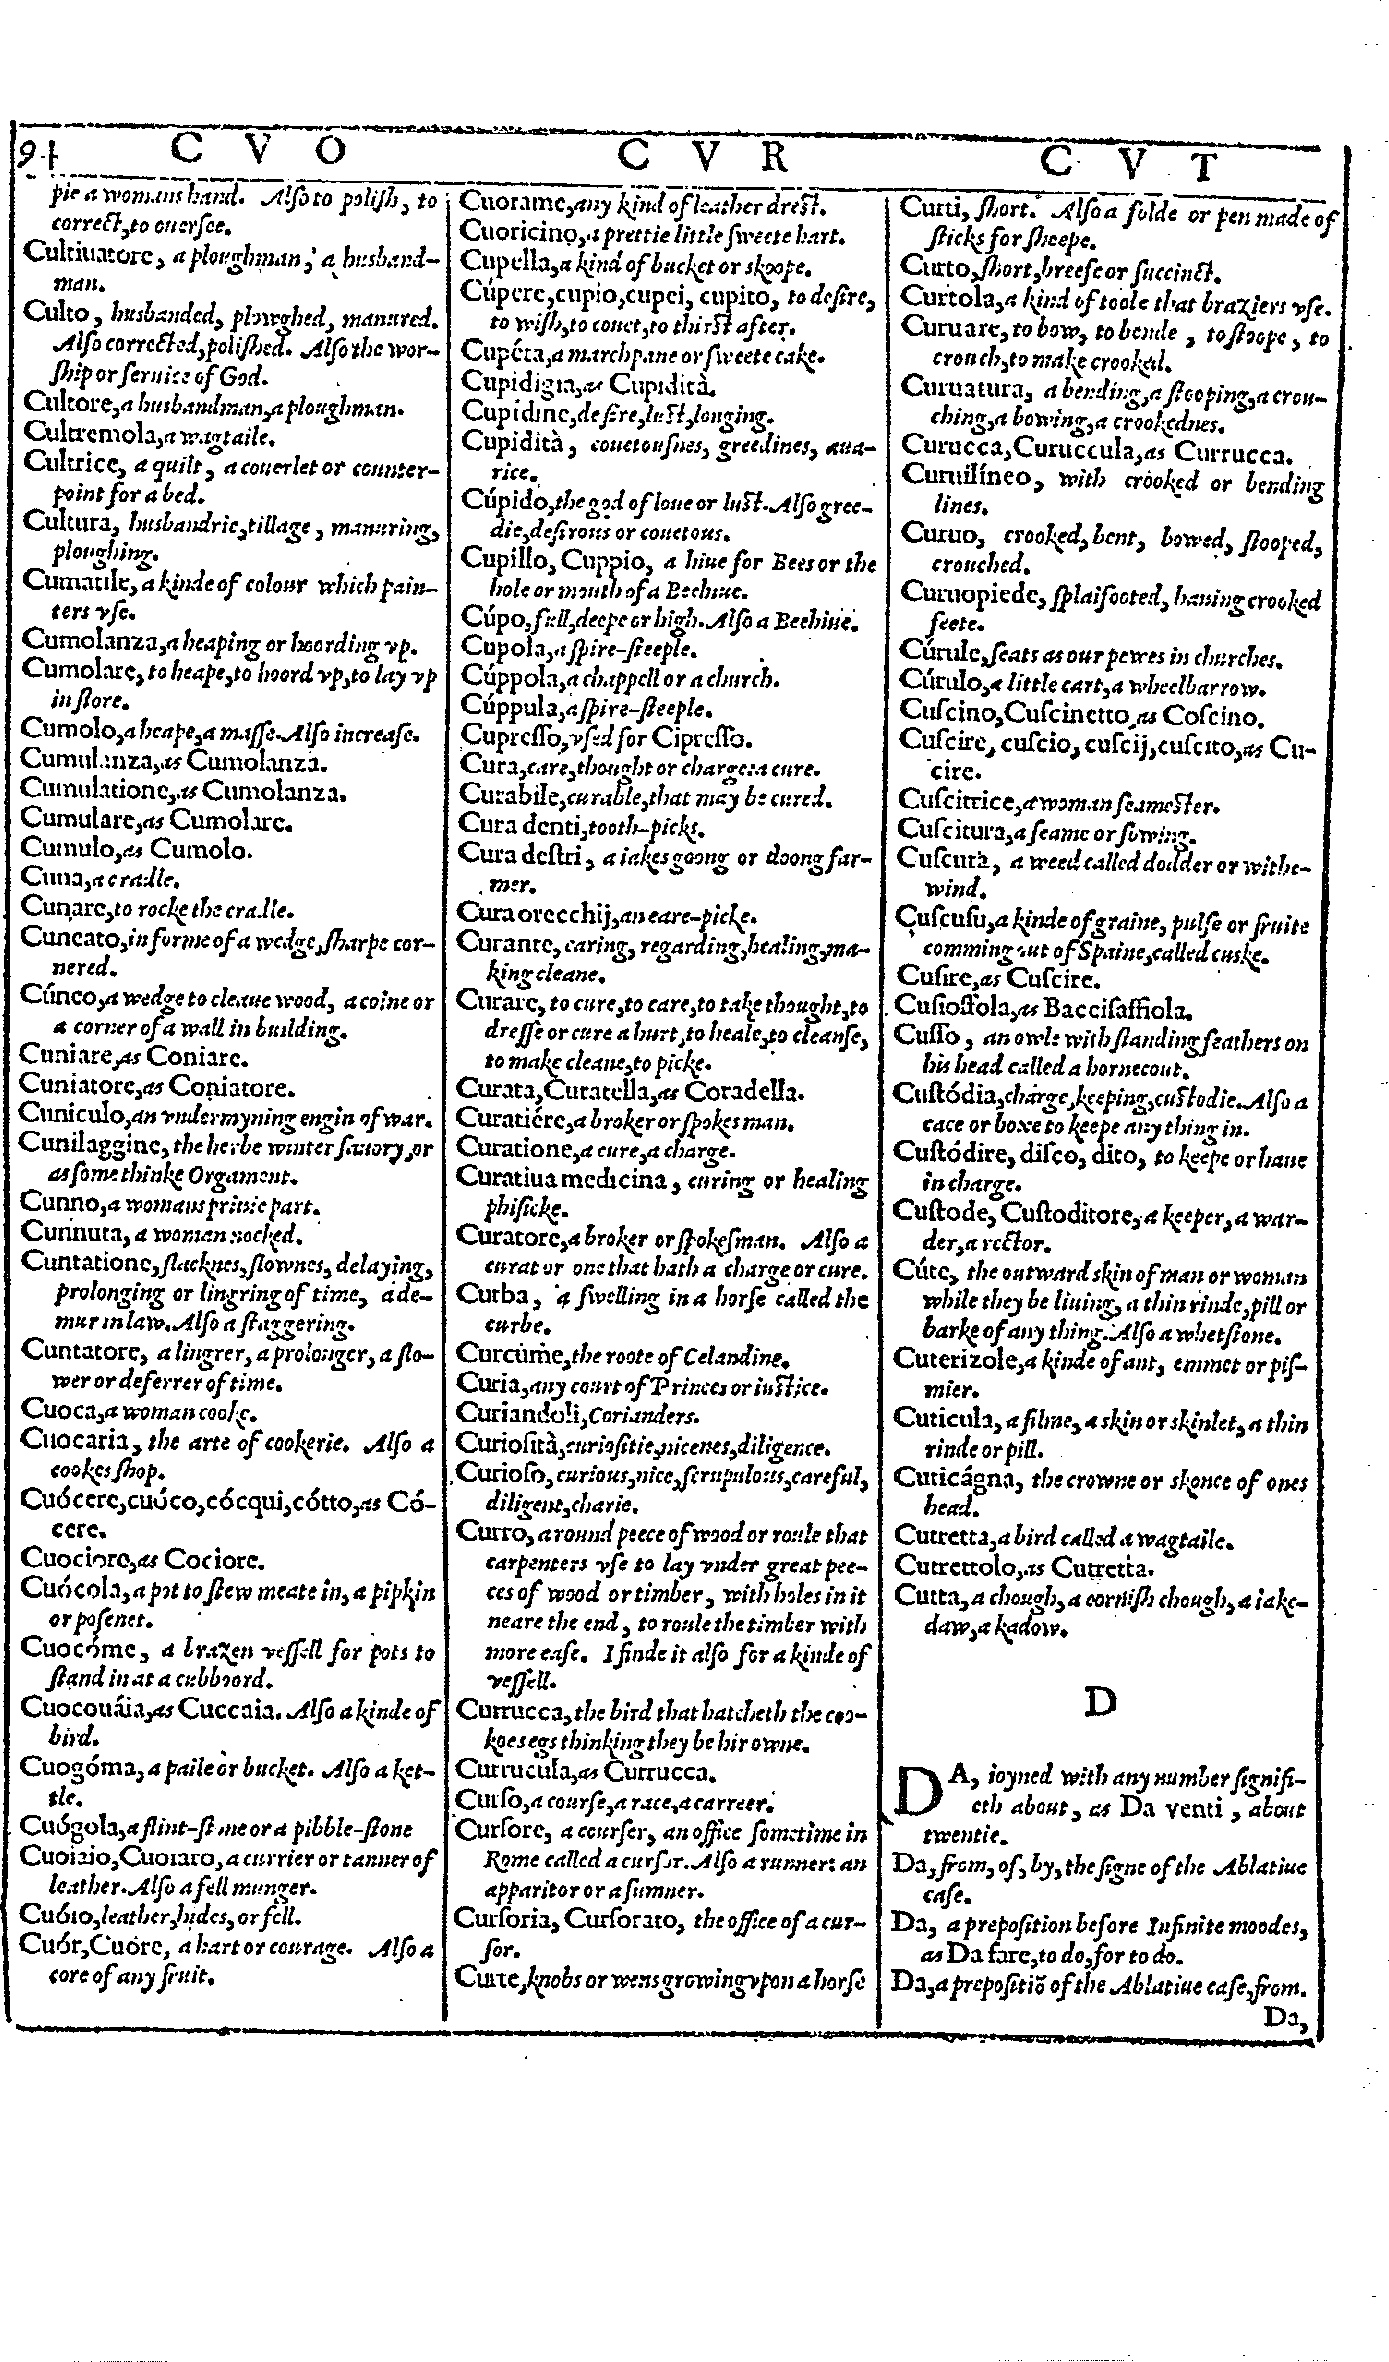 94 C V O C V R C V T
pie a womans hand. Alſo to poliſh, to
correct,to ouerſee.
Cultiuatore, a ploughman, a husband-
man.
Culto, husbanded, plowghed, manured.
Alſo corrected,poliſhed. Alſo the wor-
ſhip or ſeruice of God.
Cultore,a husbandman,a ploughman.
Cultremola,a wagtaile.
Cultrice, a quilt, a couerlet or counter-
point for a bed.
Cultura, husbandrie,tillage, manuring,
ploughing.
Cumatile, a kinde of colour which pain-
ters vſe.
Cumolanza,a heaping or hoording vp.
Cumolare, to heape,to hoord vp,to lay vp
in ſtore.
Cumolo,a heape,a maſſe.Alſo increaſe.
Cumulanza,as Cumolanza.
Cumulatione,as Cumolanza.
Cumulare,as Cumolare.
Cumulo,as Cumolo.
Cuna,a cradle.
Cunare,to rocke the cradle.
Cuneato,in forme of a wedge,ſharpe cor-
nered.
Cúneo,a wedge to cleaue wood, a coine or
a corner of a wall in building.
Cuniare,as Coniare.
Cuniatore,as Coniatore.
Cuniculo,an vndermyning engin of war.
Cunilaggine, the herbe winter ſauory,or
as ſome thinke Organient.
Cunno,a womans priuie part.
Cunnuta, a woman nocked.
Cuntatione,ſlacknes,ſlownes, delaying,
prolonging or lingring of time, a de-
mur in law.Alſo a ſtaggering.
Cuntatore, a lingrer, a prolonger, a ſlo-
wer or deferrer of time.
Cuoca,a woman cooke.
Cuocaria, the arte of cookerie. Alſo a
cookes ſhop.
Cuócere,cuóco,cócqui,cótto,as Có-
cere.
Cuociore,as Cociore.
Cuócola,a pot to ſtew meate in, a pipkin
or poſenet.
Cuocóme, a brazen veſſell for pots to
ſtand in at a cubboord.
Cuocouáia,as Cuccaia. Alſo a kinde of
bird.
Cuogóma, a paile or bucket. Alſo a ket-
tle.
Cuógola,a flint-ſtone or a pibble-ſtone
Cuoiaio,Cuoiaro,a currier or tanner of
leather. Alſo a fell munger.
Cuóio,leather,hides,or fell.
Cuór,Cuóre, a hart or courage. Alſo a
core of any fruit.
Cuorame,any kind of leather dreſt.
Cuoricino,a prettie little ſweete hart.
Cupella,a kind of bucket or skoope.
Cúpere,cupio,cupei, cupito, to deſire,
to wiſh,to couet,to thirſt after.
Cupéta,a marchpane or ſweete cake.
Cupidigia,as Cupidità.
Cupidine,deſire,luſt,longing.
Cupidità, couetouſnes, greedines, aua-
rice.
Cúpido,the god of loue or luſt.Alſo gree-
die,deſirous or couetous.
Cupillo, Cuppio, a hiue for Bees or the
hole or mouth of a Beehiue.
Cúpo,full,deepe or high.Alſo a Beehiue.
Cupola,a ſpire-ſteeple.
Cúppola,a chappell or a church.
Cúppula,a ſpire-ſteeple.
Cupreſſo,vſed for Cipreſſo.
Cura,care,thought or charge:a cure.
Curabile,curable,that may be cured.
Cura denti,tooth-picks.
Cura deſtri, a iakes goong or doong far-
mer.
Cura orecchij,an eare-picke.
Curante, caring, regarding,healing,ma-
king cleane.
Curare, to cure,to care,to take thought,to
dreſſe or cure a hurt,to heale,to cleanſe,
to make cleane,to picke.
Curata,Curatella,as Coradella.
Curatiére,a broker or ſpokesman.
Curatione,a cure,a charge.
Curatiua medicina, curing or healing
phiſicke.
Curatore,a broker or ſpokeſman. Alſo a
curat or one that hath a charge or cure.
Curba, a ſwelling in a horſe called the
curbe.
Curcúme,the roote of Celandine.
Curia,any court of Princes or iuſtice.
Curiandoli,Corianders.
Curioſità,curioſitie,nicenes,diligence.
Curioſo,curious,nice,ſcrupulous,careful,
diligent,charie.
Curro, a round peece of wood or roule that
carpenters vſe to lay vnder great pee-
ces of wood or timber, with holes in it
neare the end, to roule the timber with
more eaſe. I finde it alſo for a kinde of
veſſell.
Currucca,the bird that hatcheth the coo-
koes egs thinking they be hir owne.
Currucula,as Currucca.
Curſo,a courſe,a race,a carreer.
Curſore, a courſer, an office ſometime in
Rome called a curſor. Alſo a runner: an
apparitor or a ſumner.
Curſoria, Curſorato, the office of a cur-
ſor.
Curte,knobs or wens growing vpon a horſe
Curti, ſhort. Alſo a folde or pen made of
ſticks for ſheepe.
Curto,ſhort,breefe or ſuccinct.
Curtola,a kind of toole that braziers vſe.
Curuare, to bow, to bende, to ſtoope, to
crouch,to make crooked.
Curuatura, a bending,a ſtooping,a crou-
ching,a bowing,a crookednes.
Curucca,Curuccula,as Currucca.
Curuilíneo, with crooked or bending
lines.
Curuo, crooked, bent, bowed, ſtooped,
crouched.
Curuopiede, ſplaifooted, hauing crooked
feete.
Cúrule,ſeats as our pewes in churches.
Cúrulo,a little cart,a wheelbarrow.
Cuſcino,Cuſcinetto,as Coſcino.
Cuſcire, cuſcio, cuſcij,cuſcito,as Cu-
cire.
Cuſcitrice,a woman ſeameſter.
Cuſcitura,a ſeame or ſowing.
Cuſcuta, a weed called dodder or withe-
wind.
Cuſcuſu,a kinde of graine, pulſe or fruite
comming out of Spaine,called cuske.
Cuſire,as Cuſcire.
Cuſioffola,as Bacciſaffiola.
Cuſſo, an owle with ſtanding feathers on
his head called a hornecout.
Cuſtódia,charge,keeping,cuſtodie.Alſo a
cace or boxe to keepe any thing in.
Cuſtódire, diſco, dito, to keepe or haue
in charge.
Cuſtode, Cuſtoditore, a keeper, a war-
der,a rector.
Cúte, the outward skin of man or woman
while they be liuing, a thin rinde,pill or
barke of any thing. Alſo a whetſtone.
Cuterizole,a kinde of ant, emmet or piſ-
mier.
Cuticula, a filme, a skin or skinlet, a thin
rinde or pill.
Cuticágna, the crowne or skonce of ones
head.
Cutretta,a bird called a wagtaile.
Cutrettolo,as Cutretta.
Cutta, a chough, a corniſh chough, a iake-
daw,a kadow.
D
DA, ioyned with any number ſignifi-
eth about, as Da venti, about
twentie.
Da, from, of, by, the ſigne of the Ablatiue
caſe.
Da, a prepoſition before Infinite moodes,
as Da fare,to do,for to do.
Da,a prepoſitiõ of the Ablatiue caſe,from.
Da,